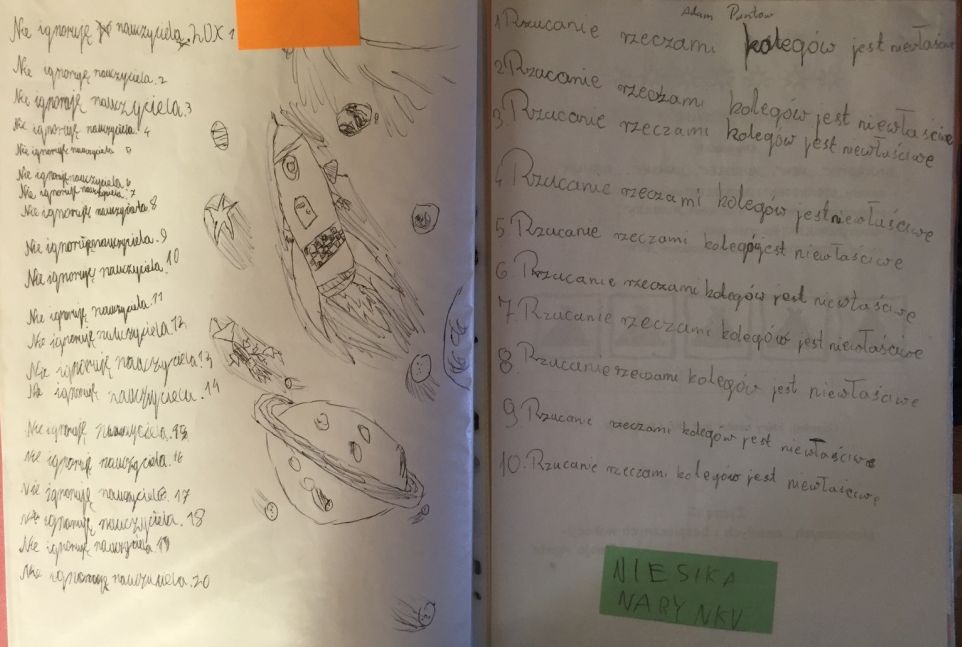 Nie ignoruję nauczyciela. 20X 1
Nie ignoruję nauczyciela. 2
Nie ignoruję nauczyciela. 3
Nie ignoruję nauczyciela. 4
Nie ignoruję nauczyciela 5
Nie ignoruję nauczyciela 6
Nie ignoruję nauczyciela. 7
Nie ignoruję nauczyciela. 8
Nie ignoruję nauczyciela. 9
Nie ignoruję nauczyciela. 10
Nie ignoruję nauczyciela. 11
Nie ignoruję nauczyciela 12
Nie ignoruję nauczyciela. 13
Nie ignoruję nauczyciela. 14
Nie ignoruję nauczyciela. 15
Nie ignoruję nauczyciela. 16
Nie ignoruję nauczyciela. 17
Nie ignoruję nauczyciela. 18
Nie ignoruję nauczyciela. 19
Nie ignoruję nauczyciela. 20
Adam
1 Rzucanie rzeczami kolegów jest niewłaściwe
2 Rzucanie rzeczami kolegów jest niewłaściwe
3. Rzucanie rzeczami kolegów jest niewłaściwe
4 Rzucanie rzeczami kolegów jest niewłaściwe
5. Rzucanie rzeczami kolegów jest niewłaściwe
6. Rzucanie rzeczami kolegów jest niewłaściwe
7. Rzucanie rzeczami kolegów jest niewłaściwe
8. Rzucanie rzeczami kolegów jest niewłaściwe
9. Rzucanie rzeczami kolegów jest niewłaściwe
10. Rzucanie rzeczami kolegów jest niewłaściwe
NIESIKA
NARYNKU